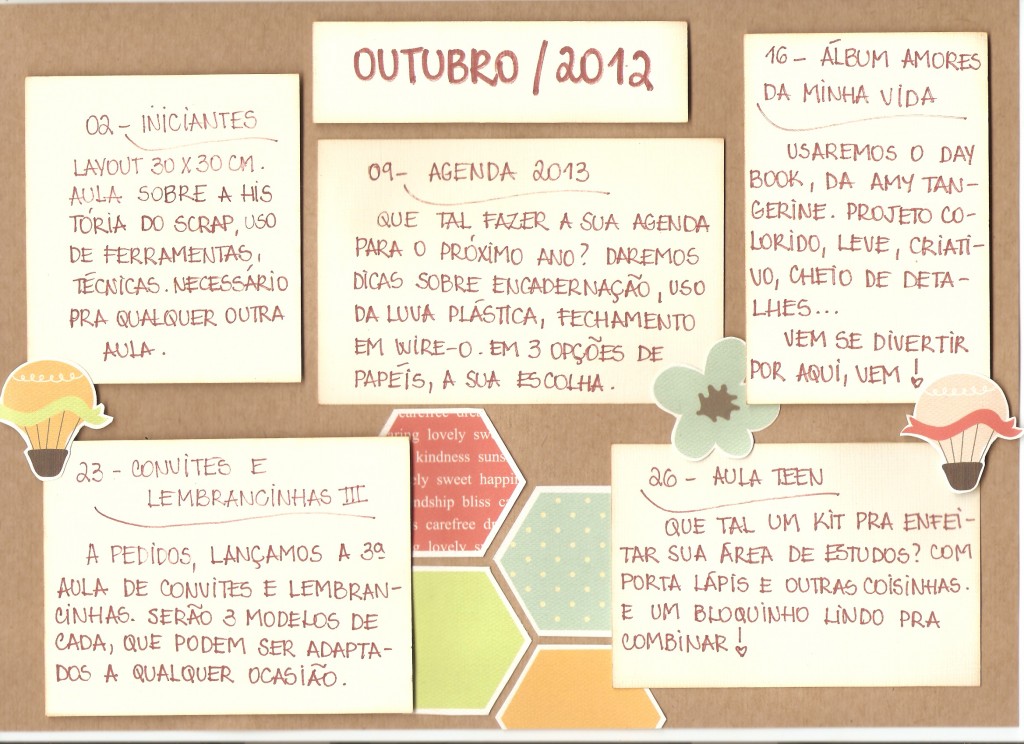 OUTUBRO / 2012
02 - INICIANTES
LAYOUT 30 X 30 CM.
AULA SOBRE A HIS
TÓRIA DO SCRAP, USO
DE FERRAMENTAS,
TÉCNICAS. NECESSÁRIO
PRA QUALQUER OUTRA
AULA.
09- AGENDA 2013
QUE TAL FAZER A SUA AGENDA
PARA O PRÓXIMO ANO? DAREMOS
DICAS SOBRE ENCADERNAÇÃO, USO
DA LUVA PLÁSTICA, FECHAMENTO
EM WIRE-O. EM 3 OPÇÕES DE
PAPÉIS, A SUA ESCOLHA.
16 - ÁLBUM AMORES
DA MINHA VIDA
USAREMOS O DAY
BOOK, DA AMY TAN-
GERINE. PROJETO CO-
LORIDO, LEVE, CRIATI-
VO, CHEIO DE DETA-
LHES...
VEM SE DIVERTIR
POR AQUI, VEM!
23 - CONVITES E
LEMBRANCINHAS III
A PEDIDOS, LANÇAMOS A 3ª
AULA DE CONVITES E LEMBRAN-
CINHAS. SERÃO 3 MODELOS DE
CADA, QUE PODEM SER ADAPTA-
DOS A QUALQUER OCASIÃO.
carefree
lovely
kindness
sweet
bliss
carefree
lovely
26 - AULA TEEN
QUE TAL UM KIT PRA ENFEI-
TAR SUA ÁREA DE ESTUDOS? COM
PORTA LÁPIS E OUTRAS COISINHAS.
E UM BLOQUINHO LINDO PRA
COMBINAR!